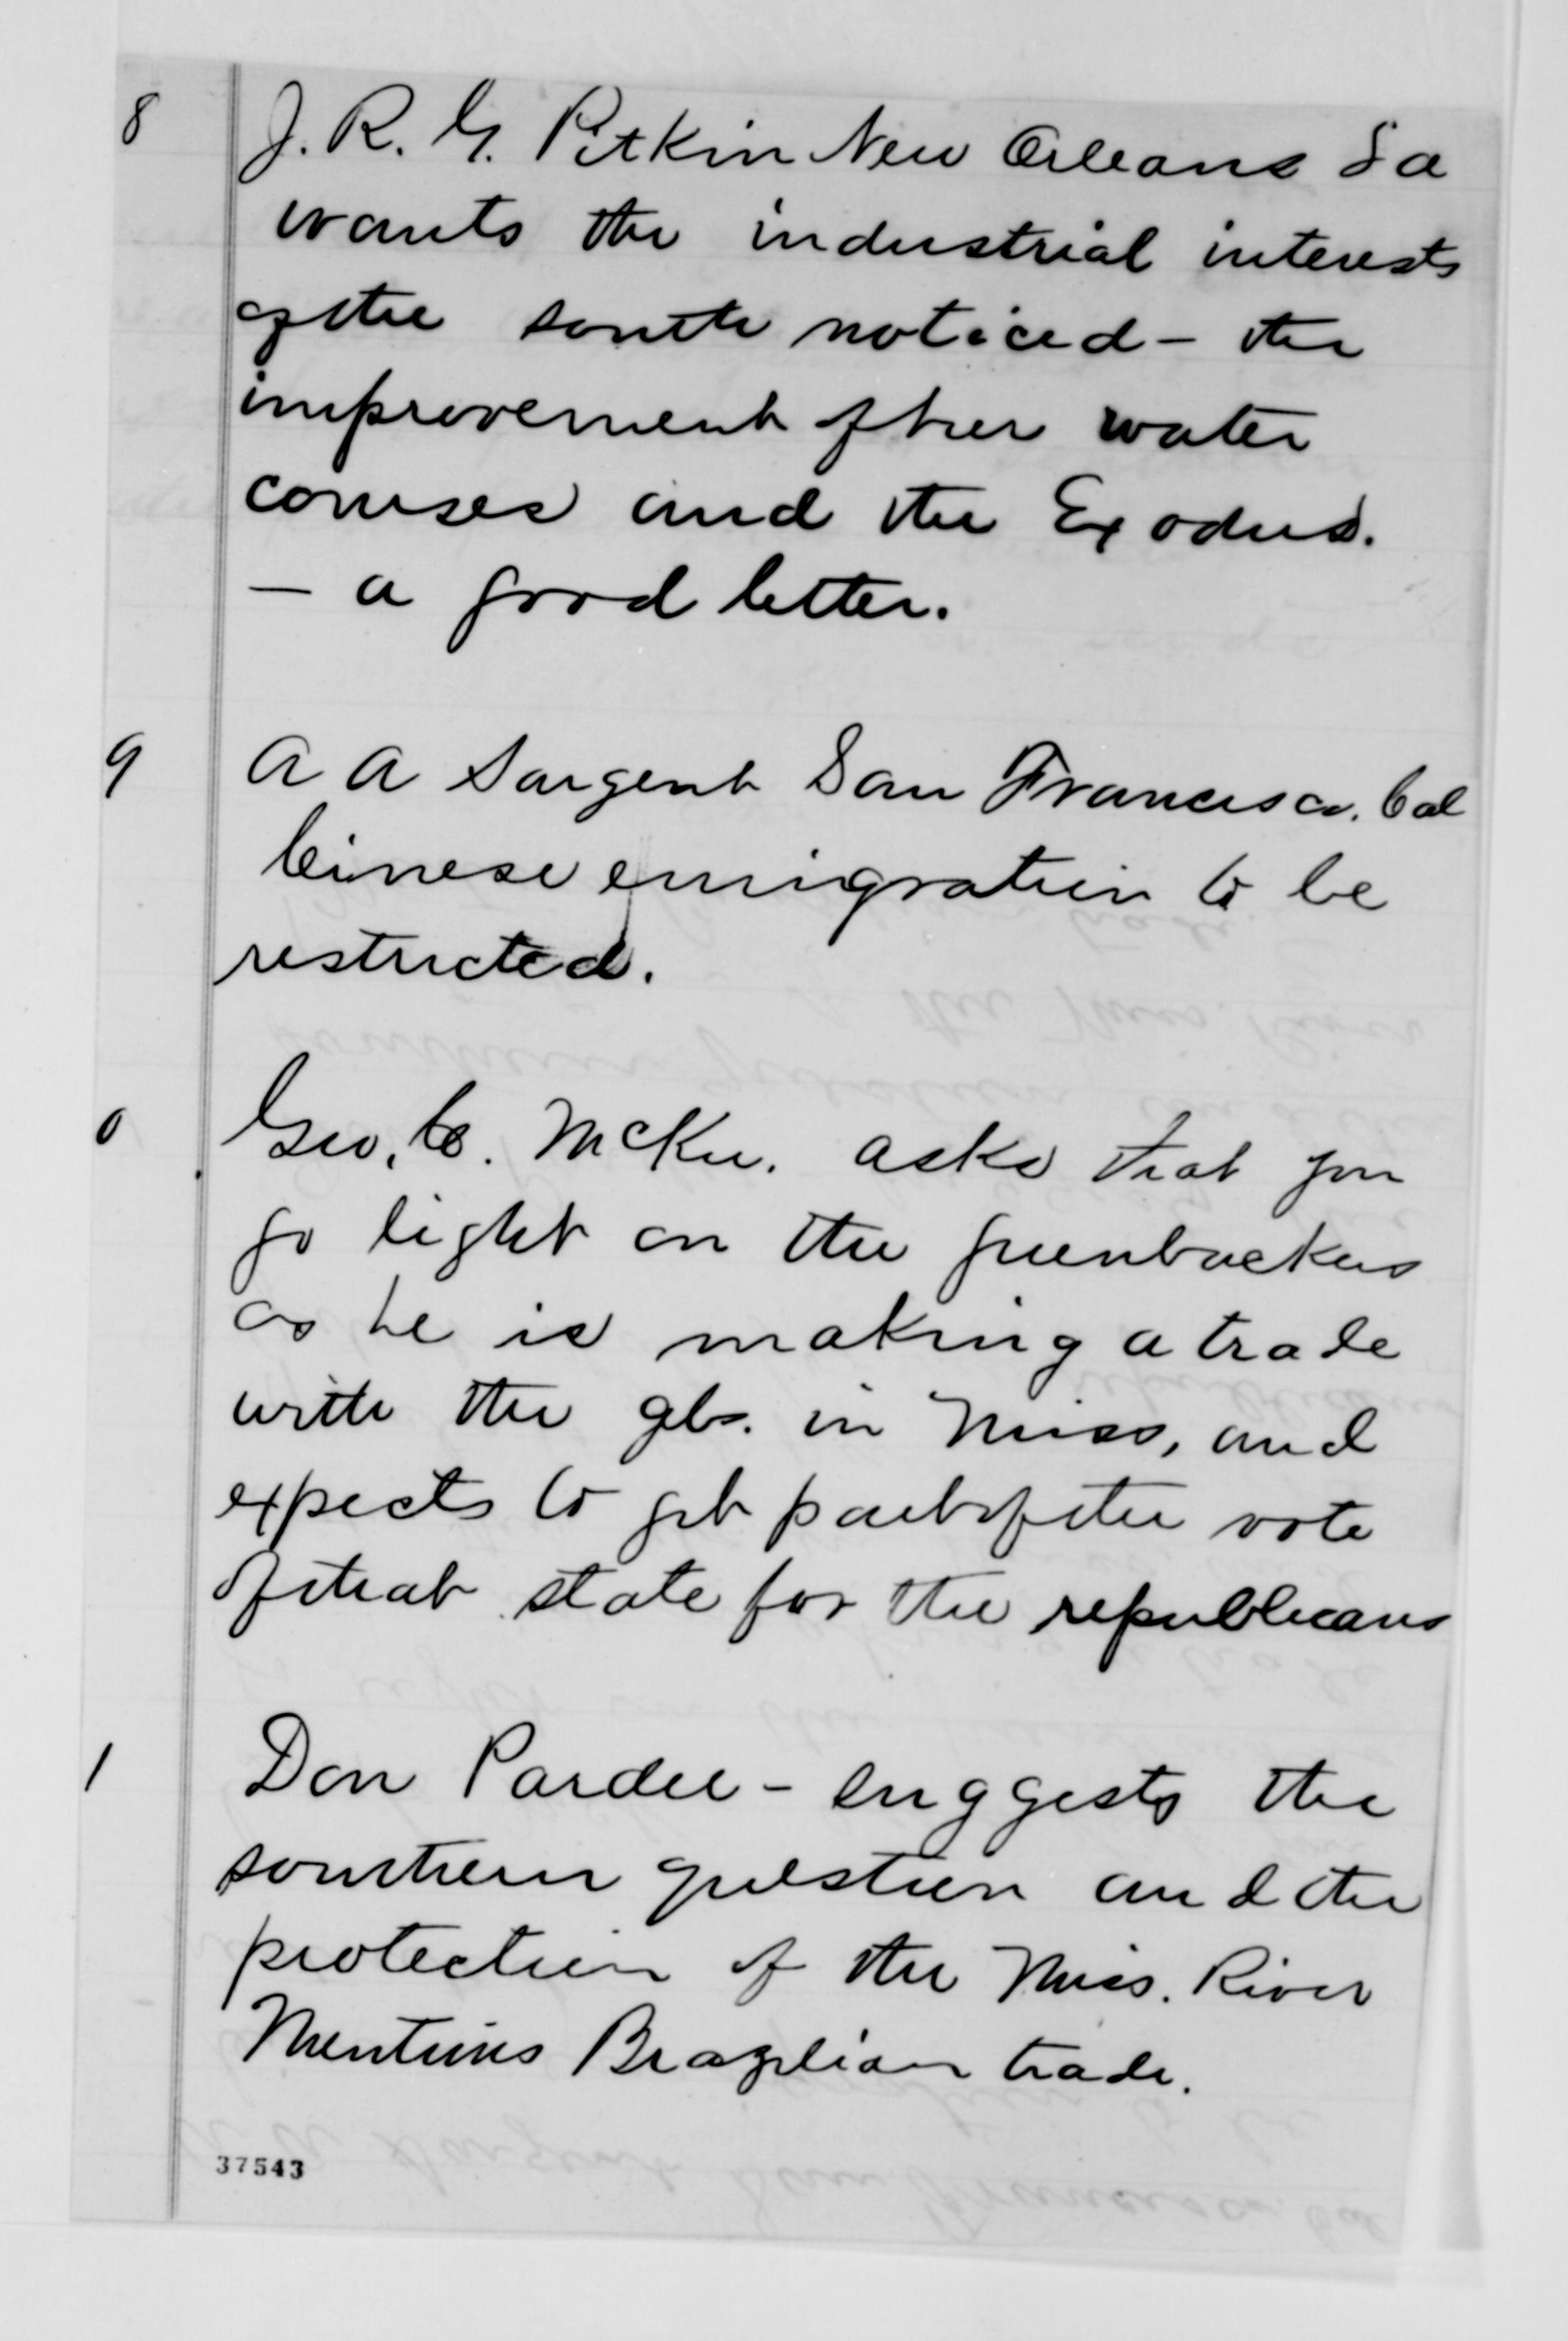 8 J. R. G. Pitkin New Orleans La
wants the industrial interests
of the south noticed - the
improvement of her water
courses and the Exodus.
- a good letter.
9 A A Sargent San Francisco. Cal
Cinese emigration to be
restricted.
0 Geo. C. McKee. asks that you
go light on the greenbackers
as he is making a trade
with the gbs. in Miss, and
expects to get part of the vote
of that state for the republicans
1 Don Pardee - suggests the
southern question and the
protection of the Miss. River
Mentions Brazilian trade.
37543